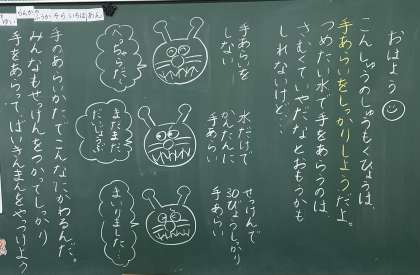 おはよう
こんしゅうのしゅうもくひょうは、
手あらいをしっかりしようだよ。
つめたい水で手をあらうのは、
さむくていやだなとおもうかも
しれないけど…
手あらいを
しない…
へっちゃらだ!
水だけで
かんたんに
手あらい
まだまだ
だいじょうぶ
せっけんで
30びょうしっかり
手あらい
まいりました…
手のあらいかたでこんなにかわるんだ。
みんなもせっけんをつかってしっかり
手をあらって、ばいきんまんをやっつけよう